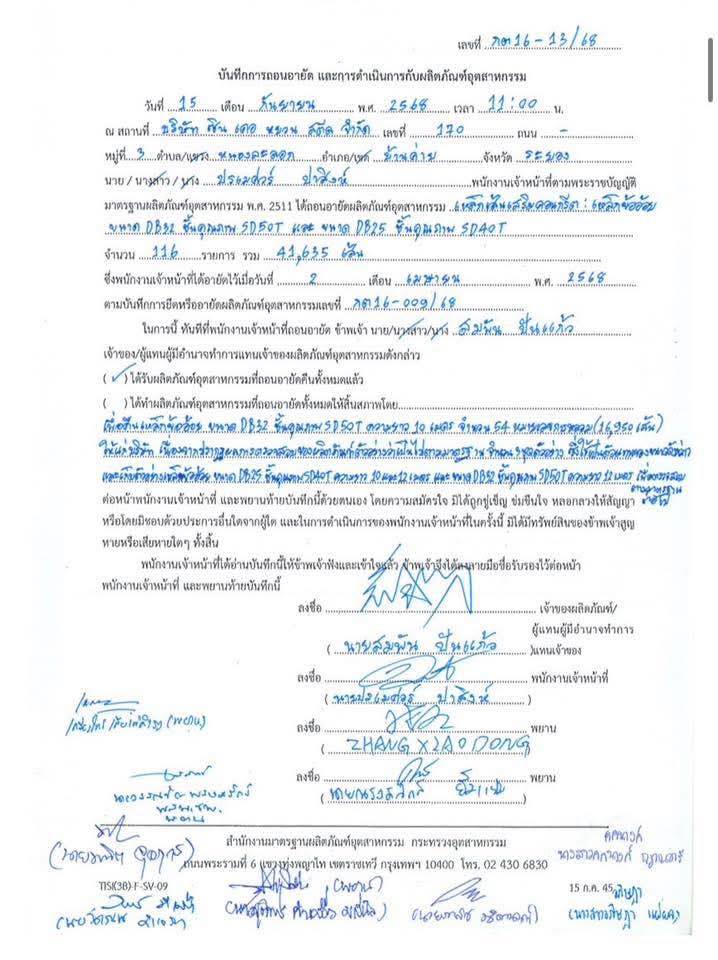 เลขที่ กต16-13/68
บันทึกการถอนอายัด และการดำเนินการกับผลิตภัณฑ์อุตสาหกรรม
วันที่ 15 เดือน กันยายน พ.ศ. 2568 เวลา 11:00 น.
ณ สถานที่ บริษัท ซิน เคอ หยวน สตีล จำกัด เลขที่ 170 ถนน -
หมู่ที่ 3 ตำบล/แขวง หนองละลอก อำเภอ/เขต บ้านค่าย จังหวัด ระยอง
นาย / นางสาว / นาง ปรเมศวร์ ปาสิงห์ พนักงานเจ้าหน้าที่ตามพระราชบัญญัติ
มาตรฐานผลิตภัณฑ์อุตสาหกรรม พ.ศ. 2511 ได้ถอนอายัดผลิตภัณฑ์อุตสาหกรรม เหล็กเส้นเสริมคอนกรีต : เหล็กข้ออ้อย
ขนาด DB32 ชั้นคุณภาพ SD50T และ ขนาด DB25 ชั้นคุณภาพ SD40T
จำนวน 116 รายการ รวม 41,635 เส้น
ซึ่งพนักงานเจ้าหน้าที่ได้อายัดไว้เมื่อวันที่ 2 เดือน เมษายน พ.ศ. 2568
ตามบันทึกการยึดหรืออายัดผลิตภัณฑ์อุตสาหกรรมเลขที่ กต16-009/68
ในการนี้ ทันทีที่พนักงานเจ้าหน้าที่ถอนอายัด ข้าพเจ้า นาย/นางสาว/นาง สมพัน ปันแก้ว
เจ้าของ/ผู้แทนผู้มีอำนาจทำการแทนเจ้าของผลิตภัณฑ์อุตสาหกรรมดังกล่าว
( ✓ ) ได้รับผลิตภัณฑ์อุตสาหกรรมที่ถอนอายัดคืนทั้งหมดแล้ว
( ) ได้ทำผลิตภัณฑ์อุตสาหกรรมที่ถอนอายัดทั้งหมดให้สิ้นสภาพโดย
เพื่อคืนเหล็กข้ออ้อย ขนาด DB32 ชั้นคุณภาพ SD50T ความยาว 10 เมตร จำนวน 54 หมายเลข (16,950 เส้น)
ให้แก่บริษัท เนื่องจากปรากฏผลการตรวจสอบของผลิตภัณฑ์ตัวอย่างว่าเป็นไปตามมาตรฐาน
และเก็บตัวอย่างเหล็กข้ออ้อย ขนาด DB25 ชั้นคุณภาพ SD40T ความยาว 10 และ 12 เมตร และ ขนาด DB32 ชั้นคุณภาพ SD50T ความยาว 12 เมตร เพื่อตรวจสอบ
ตามมาตรฐาน
ต่อหน้าพนักงานเจ้าหน้าที่ และพยานท้ายบันทึกนี้ด้วยตนเอง โดยความสมัครใจ มิได้ถูกขู่เข็ญ ข่มขืนใจ หลอกลวงให้สัญญา
หรือโดยมิชอบด้วยประการอื่นใดจากผู้ใด และในการดำเนินการของพนักงานเจ้าหน้าที่ในครั้งนี้ มิได้มีทรัพย์สินของข้าพเจ้าสูญ
หายหรือเสียหายใดๆ ทั้งสิ้น
พนักงานเจ้าหน้าที่ได้อ่านบันทึกนี้ให้ข้าพเจ้าฟังและเข้าใจแล้ว ข้าพเจ้าจึงได้ลงลายมือชื่อรับรองไว้ต่อหน้า
พนักงานเจ้าหน้าที่ และพยานท้ายบันทึกนี้
ลงชื่อ เจ้าของผลิตภัณฑ์/
ผู้แทนผู้มีอำนาจทำการ
( นายสมพัน ปันแก้ว )แทนเจ้าของ
ลงชื่อ พนักงานเจ้าหน้าที่
( นายปรเมศวร์ ปาสิงห์ )
ลงชื่อ พยาน
( ZHANG XIAO DONG
ลงชื่อ พยาน
(พยาน)
พยาน
สำนักงานมาตรฐานผลิตภัณฑ์อุตสาหกรรม กระทรวงอุตสาหกรรม
ถนนพระรามที่ 6 แขวงทุ่งพญาไท เขตราชเทวี กรุงเทพฯ 10400 โทร. 02 430 6830
TISI(3B)-F-SV-09 (พยาน) 15 ก.ค. 45